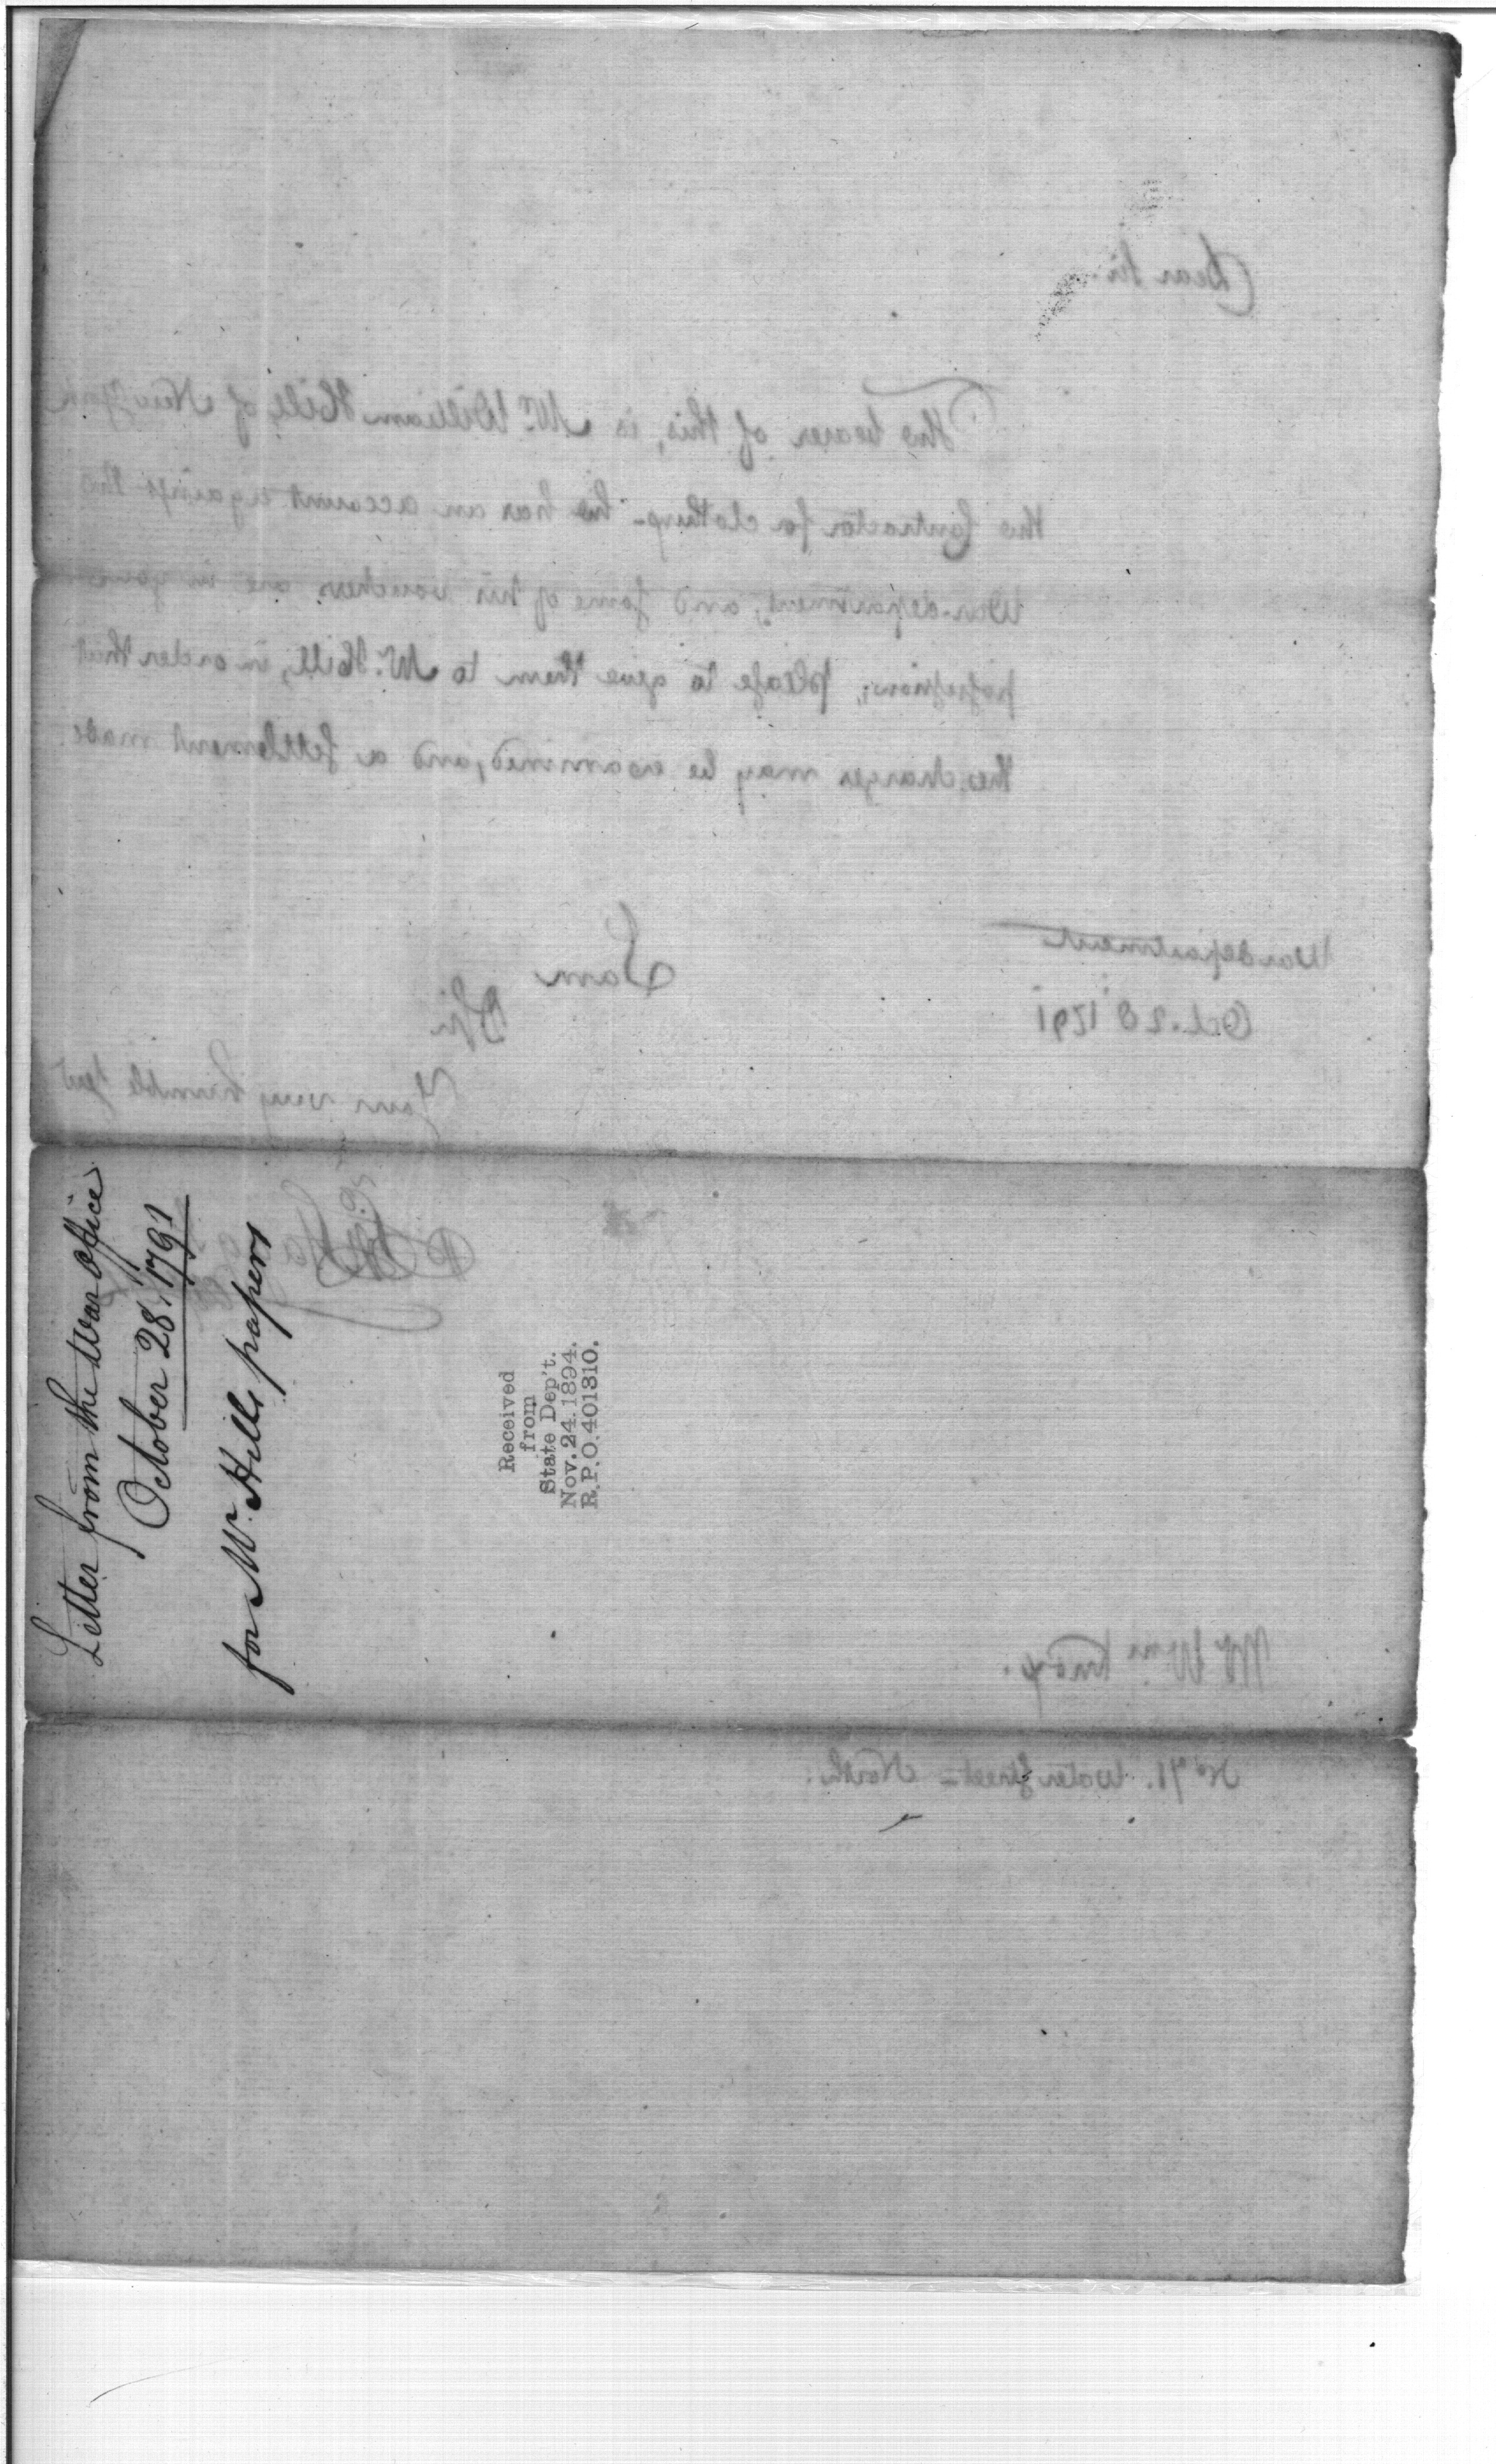 Dear Sir.
The bearer of this, is Mr. William Hill, of New York
the Contractor for clothing - he has an account against the
War department, and some of his vouchers are in your
possession; please to give them to Mr. Hill, in order that
the charges may be examined, and a settlement made
War department
Oct. 28 1791
I am
D Sir
Your very humble Ser
Letter from the War office
October 28, 1791
for Mr. Hills papers
Received
from
State Dep't.
Nov. 24. 1894.
R.P.O. 401310.
Mr. Wm. Knox.
No 71. Water Street = North.